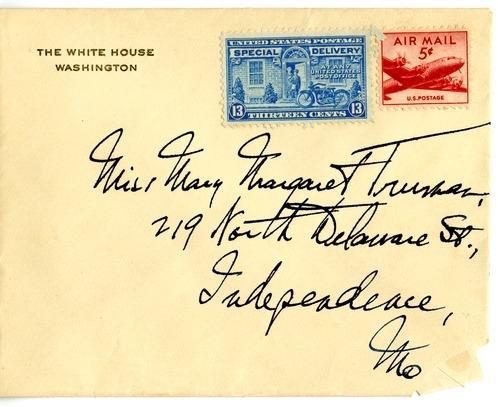 THE WHITE HOUSE
WASHINGTON
UNITED STATES POSTAGE
SPECIAL DELIVERY
AT ANY
UNITED STATES
POST OFFICE
13 THIRTEEN CENTS 13
AIR MAIL
5¢
U.S. POSTAGE
Miss Mary Margaret Truman,
219 North Delaware St.,
Independence,
Mo